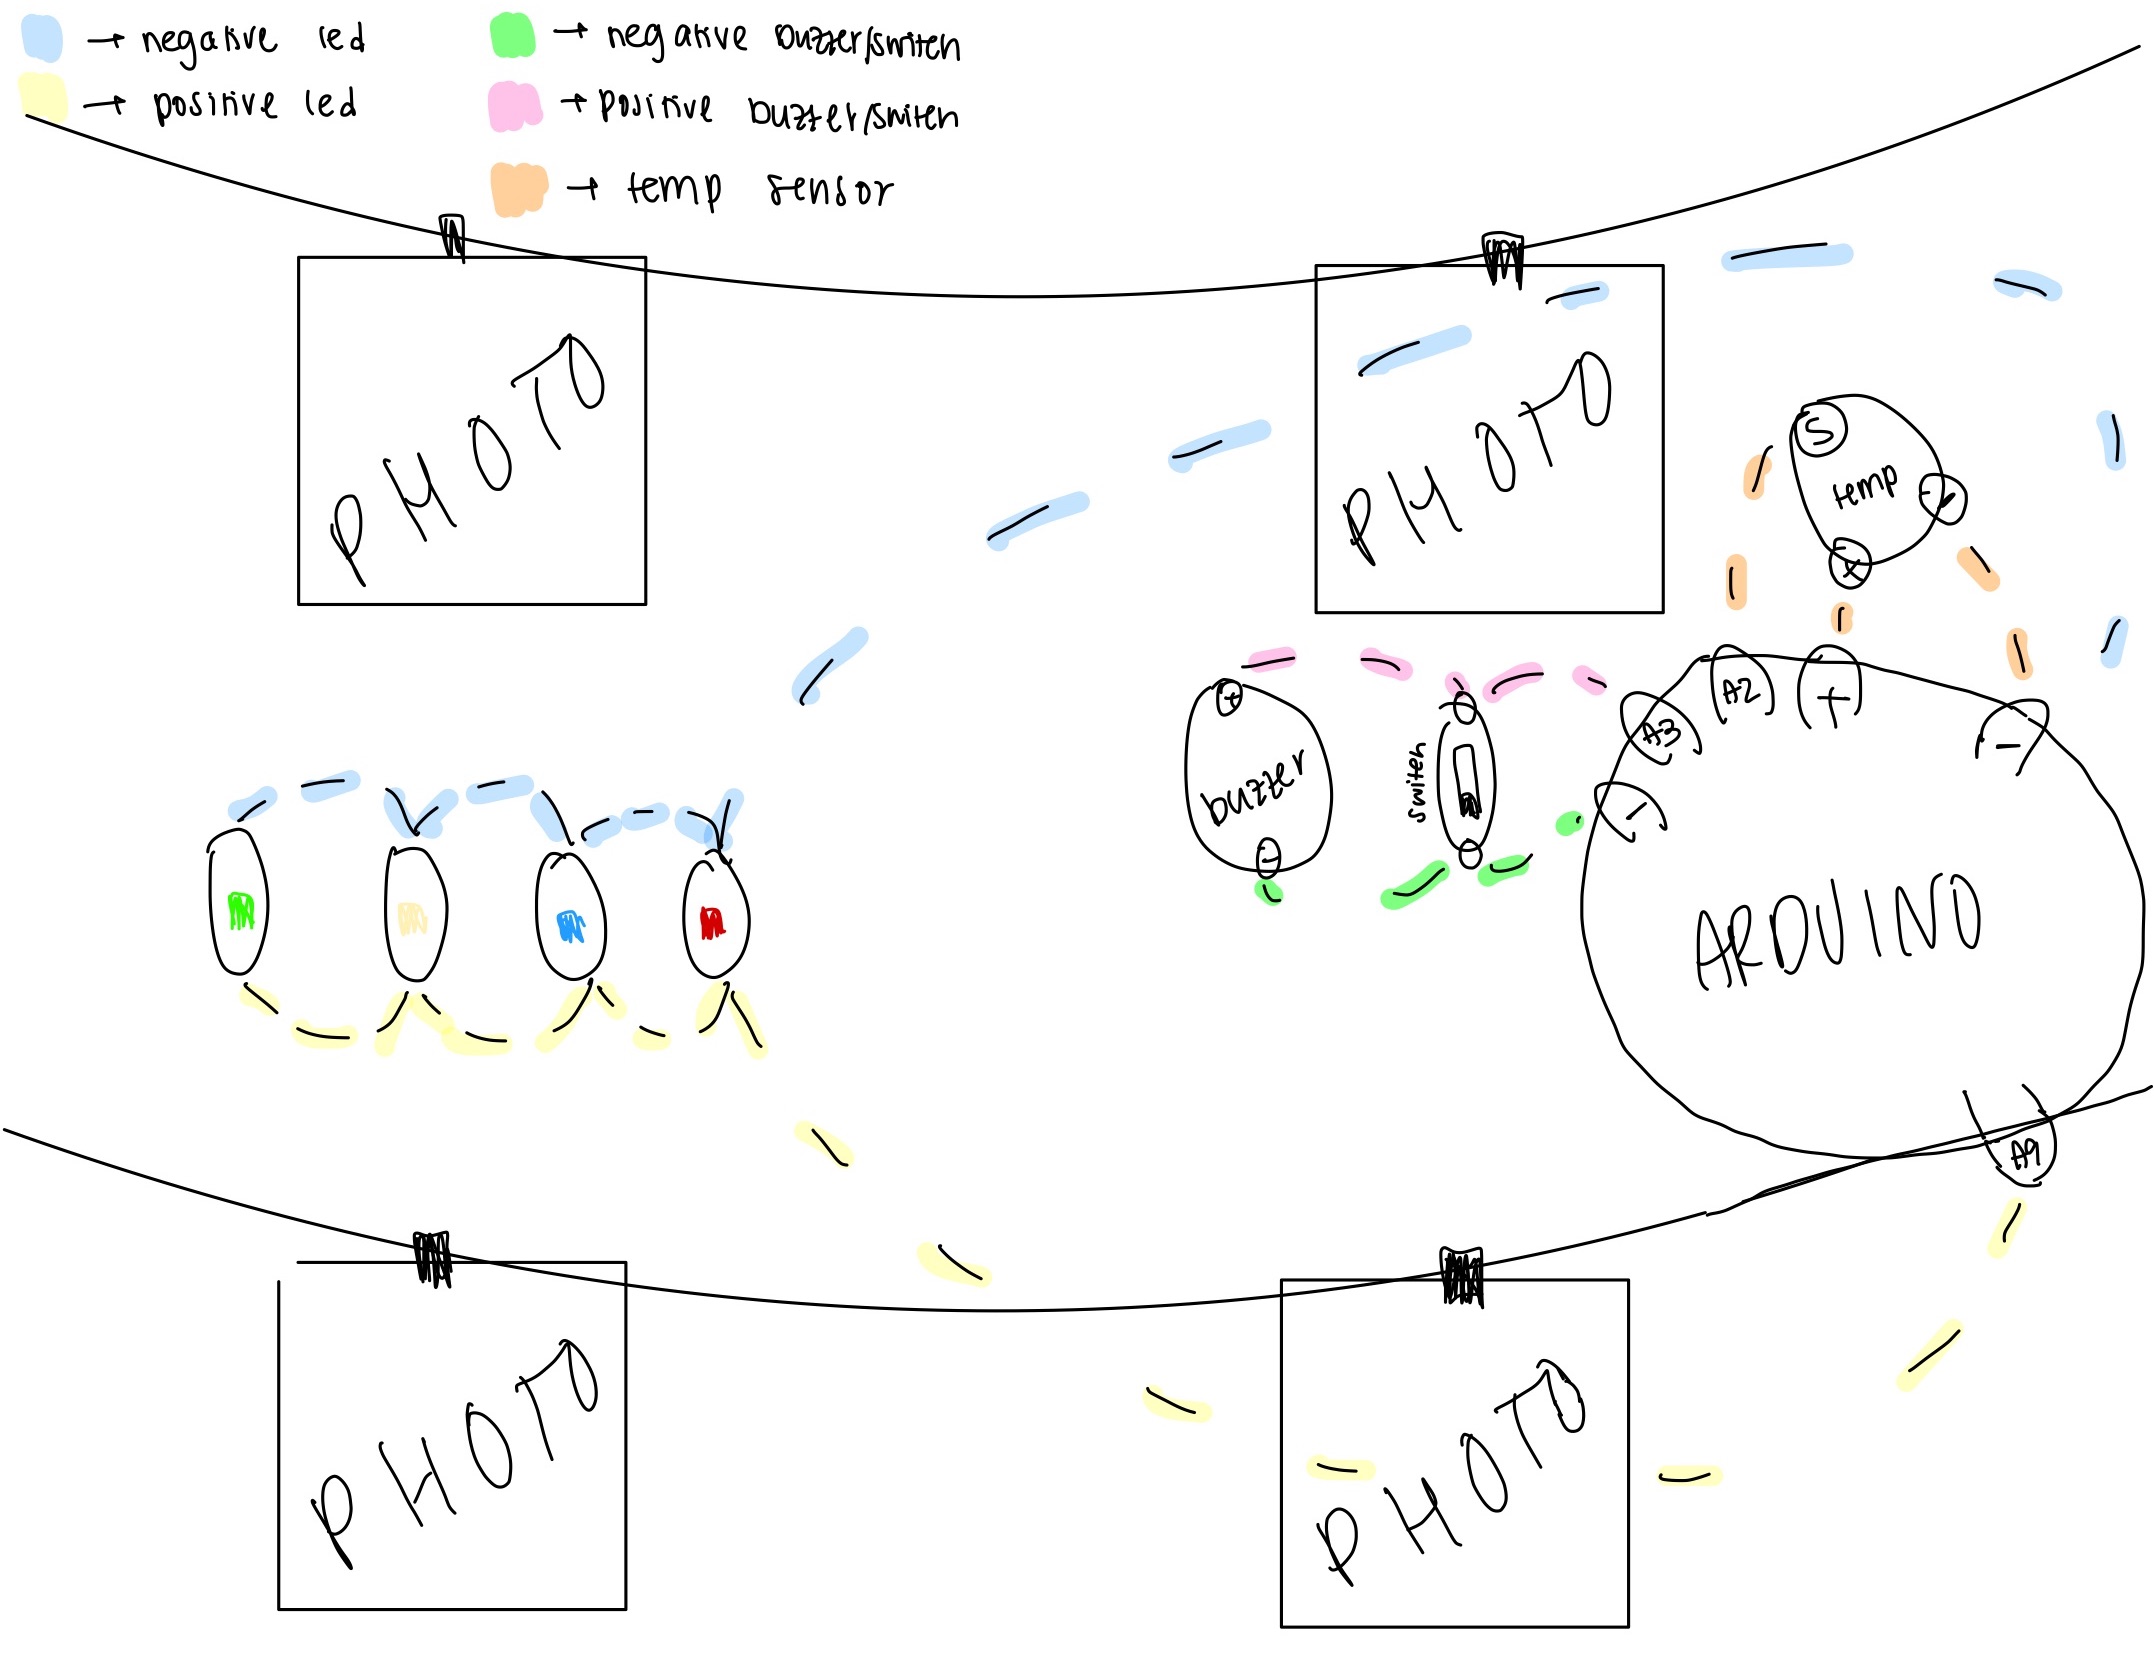 → negative led
→ positive led
→ negative buzzer/switch
→ positive buzzer/switch
→ temp sensor
PHOTO
PHOTO
S
temp
-
+
A3
A2
+
-
-
+
buzzer
-
switch
ARDUINO
A9
PHOTO
PHOTO